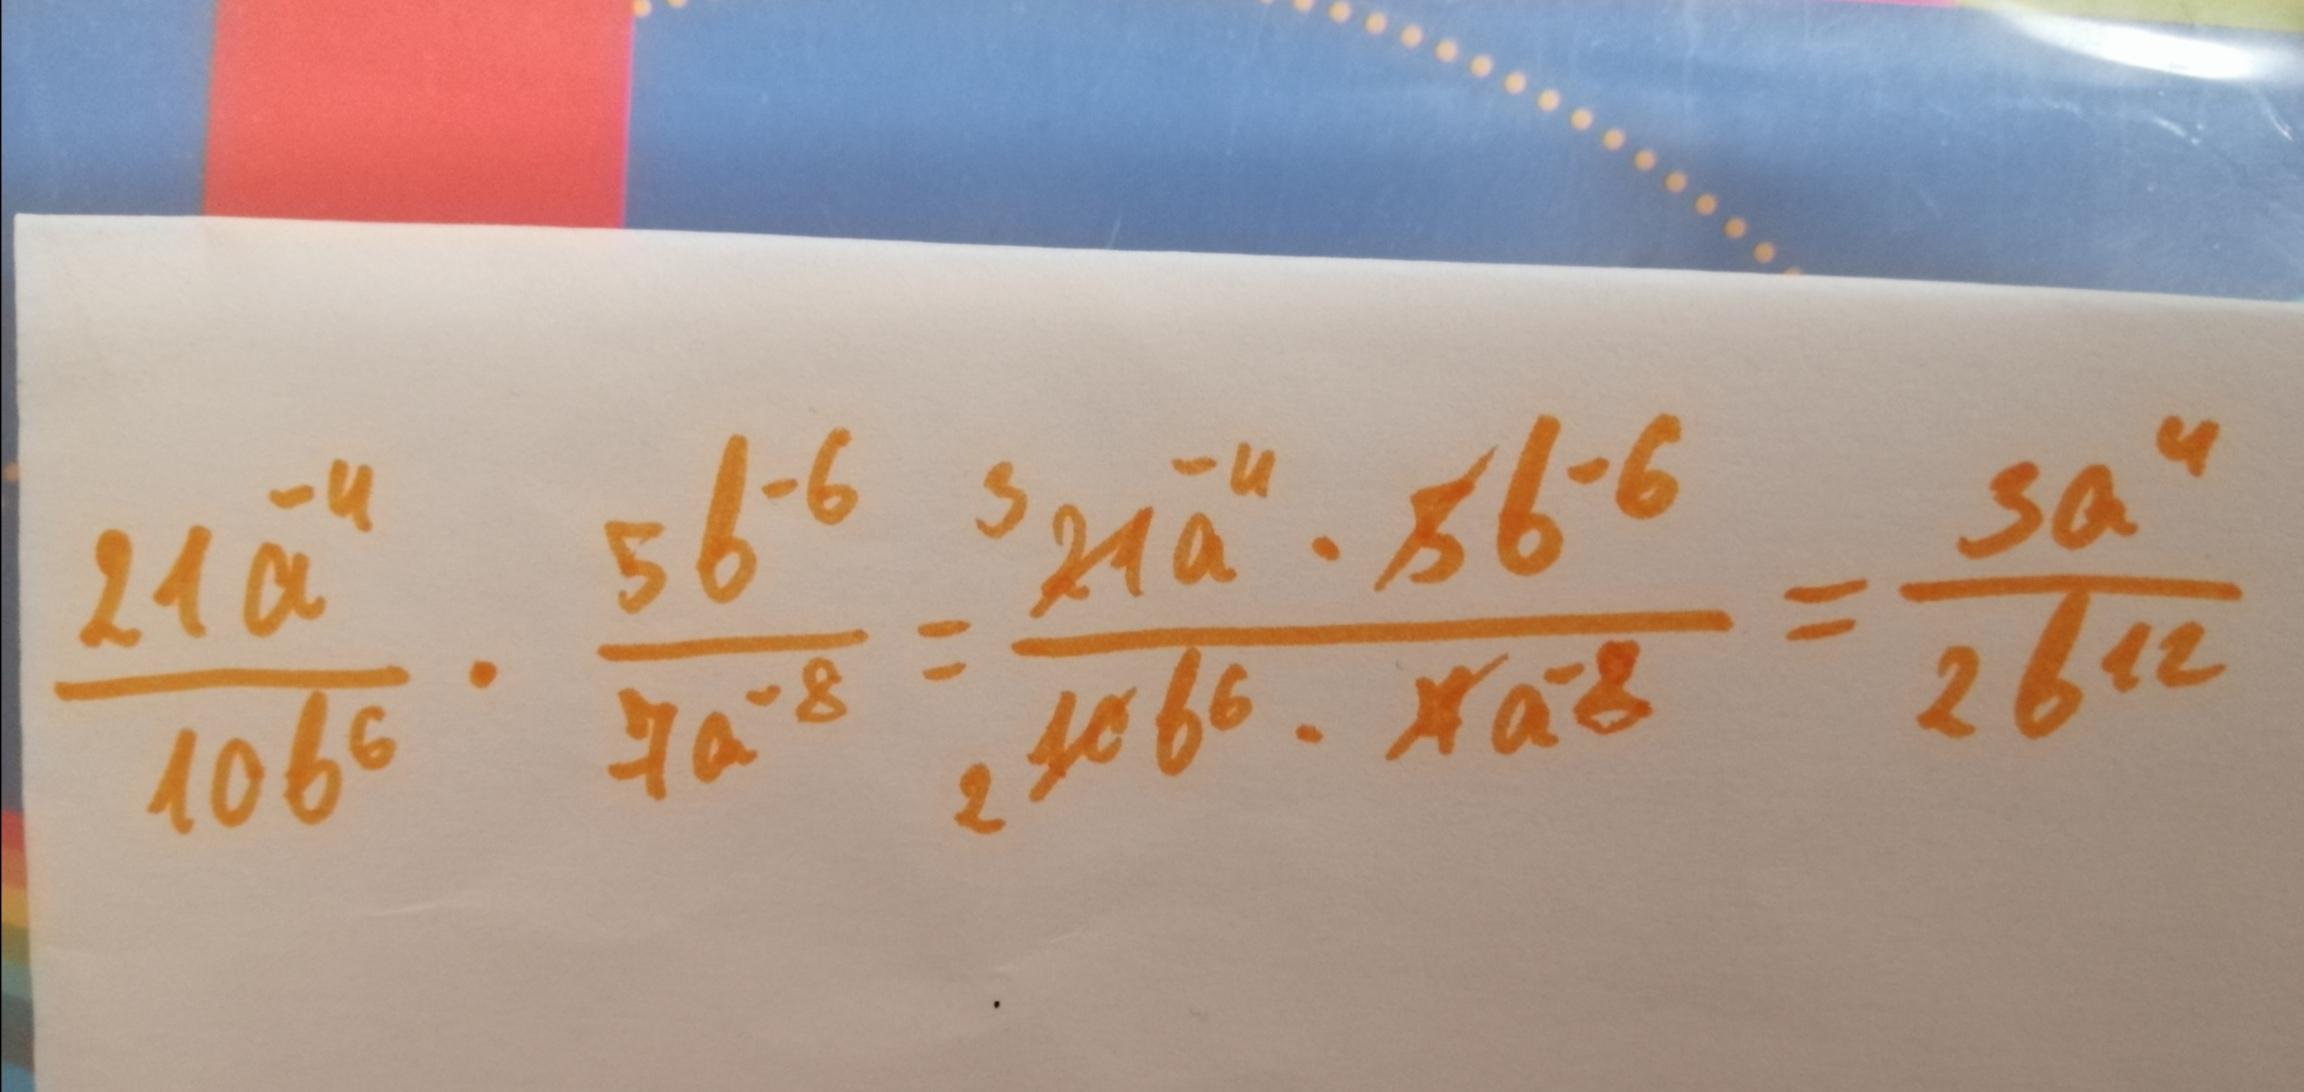 21a⁻⁴/10b⁶ · 5b⁻⁶/7a⁻⁸ = ³21a⁻⁴ · 5b⁻⁶/₂10b⁶ · 7a⁻⁸ = 3a⁴/2b¹²